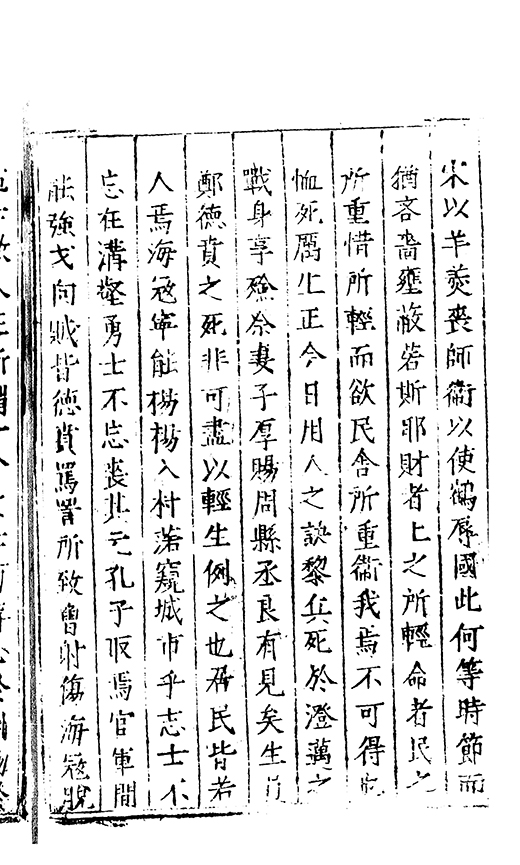 宋以羊羮喪師衞以使鶴辱國此何等時節而
猶吝嗇壅蔽若斯耶財者上之所輕命者民之
所重惜所輕而欲民舍所重衞我焉不可得
恤死厲生正今日用人之訣黎兵死於澄萬之
戰身享祭妻子厚賜周縣丞良有見矣生
鄭德賁之死非可盡以輕生例之也居民皆若
人焉海寇寧能楊楊入村落窺城市乎志士不
忘在溝壑勇士不忘喪其元孔子取焉官軍間
能強戈向賊皆德賁罵詈所致曾射傷海寇脫